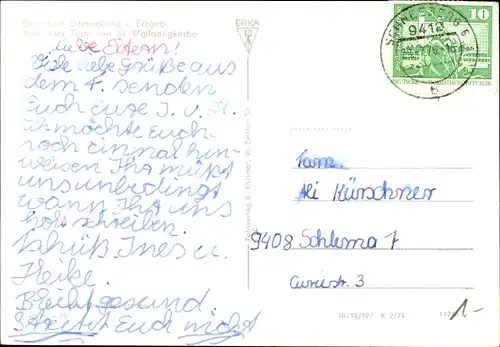 Bergstadt Schneeberg i. Erzgeb.
Blick vom Turm der St. Wolfgangkirche
ERKA
SCHNEEBERG 6
9412
b
10
DEUTSCHE DEMOKRATISCHE REPUBLIK
Liebe Eltern!
Viele liebe Grüße aus
dem F. senden
Euch Eure I. u. H.
Ich möchte Euch
noch einmal hin-
weisen Ihr müßt
uns unbedingt
wann Ihr uns
holt schreiben.
Tschüß Ines u.
Heike.
Bleibt gesund
Streitet Euch nicht
Fam.
Kürschner
9408 Schlema 1
Curiestr. 3
III/18/197 K 2/74
1,-